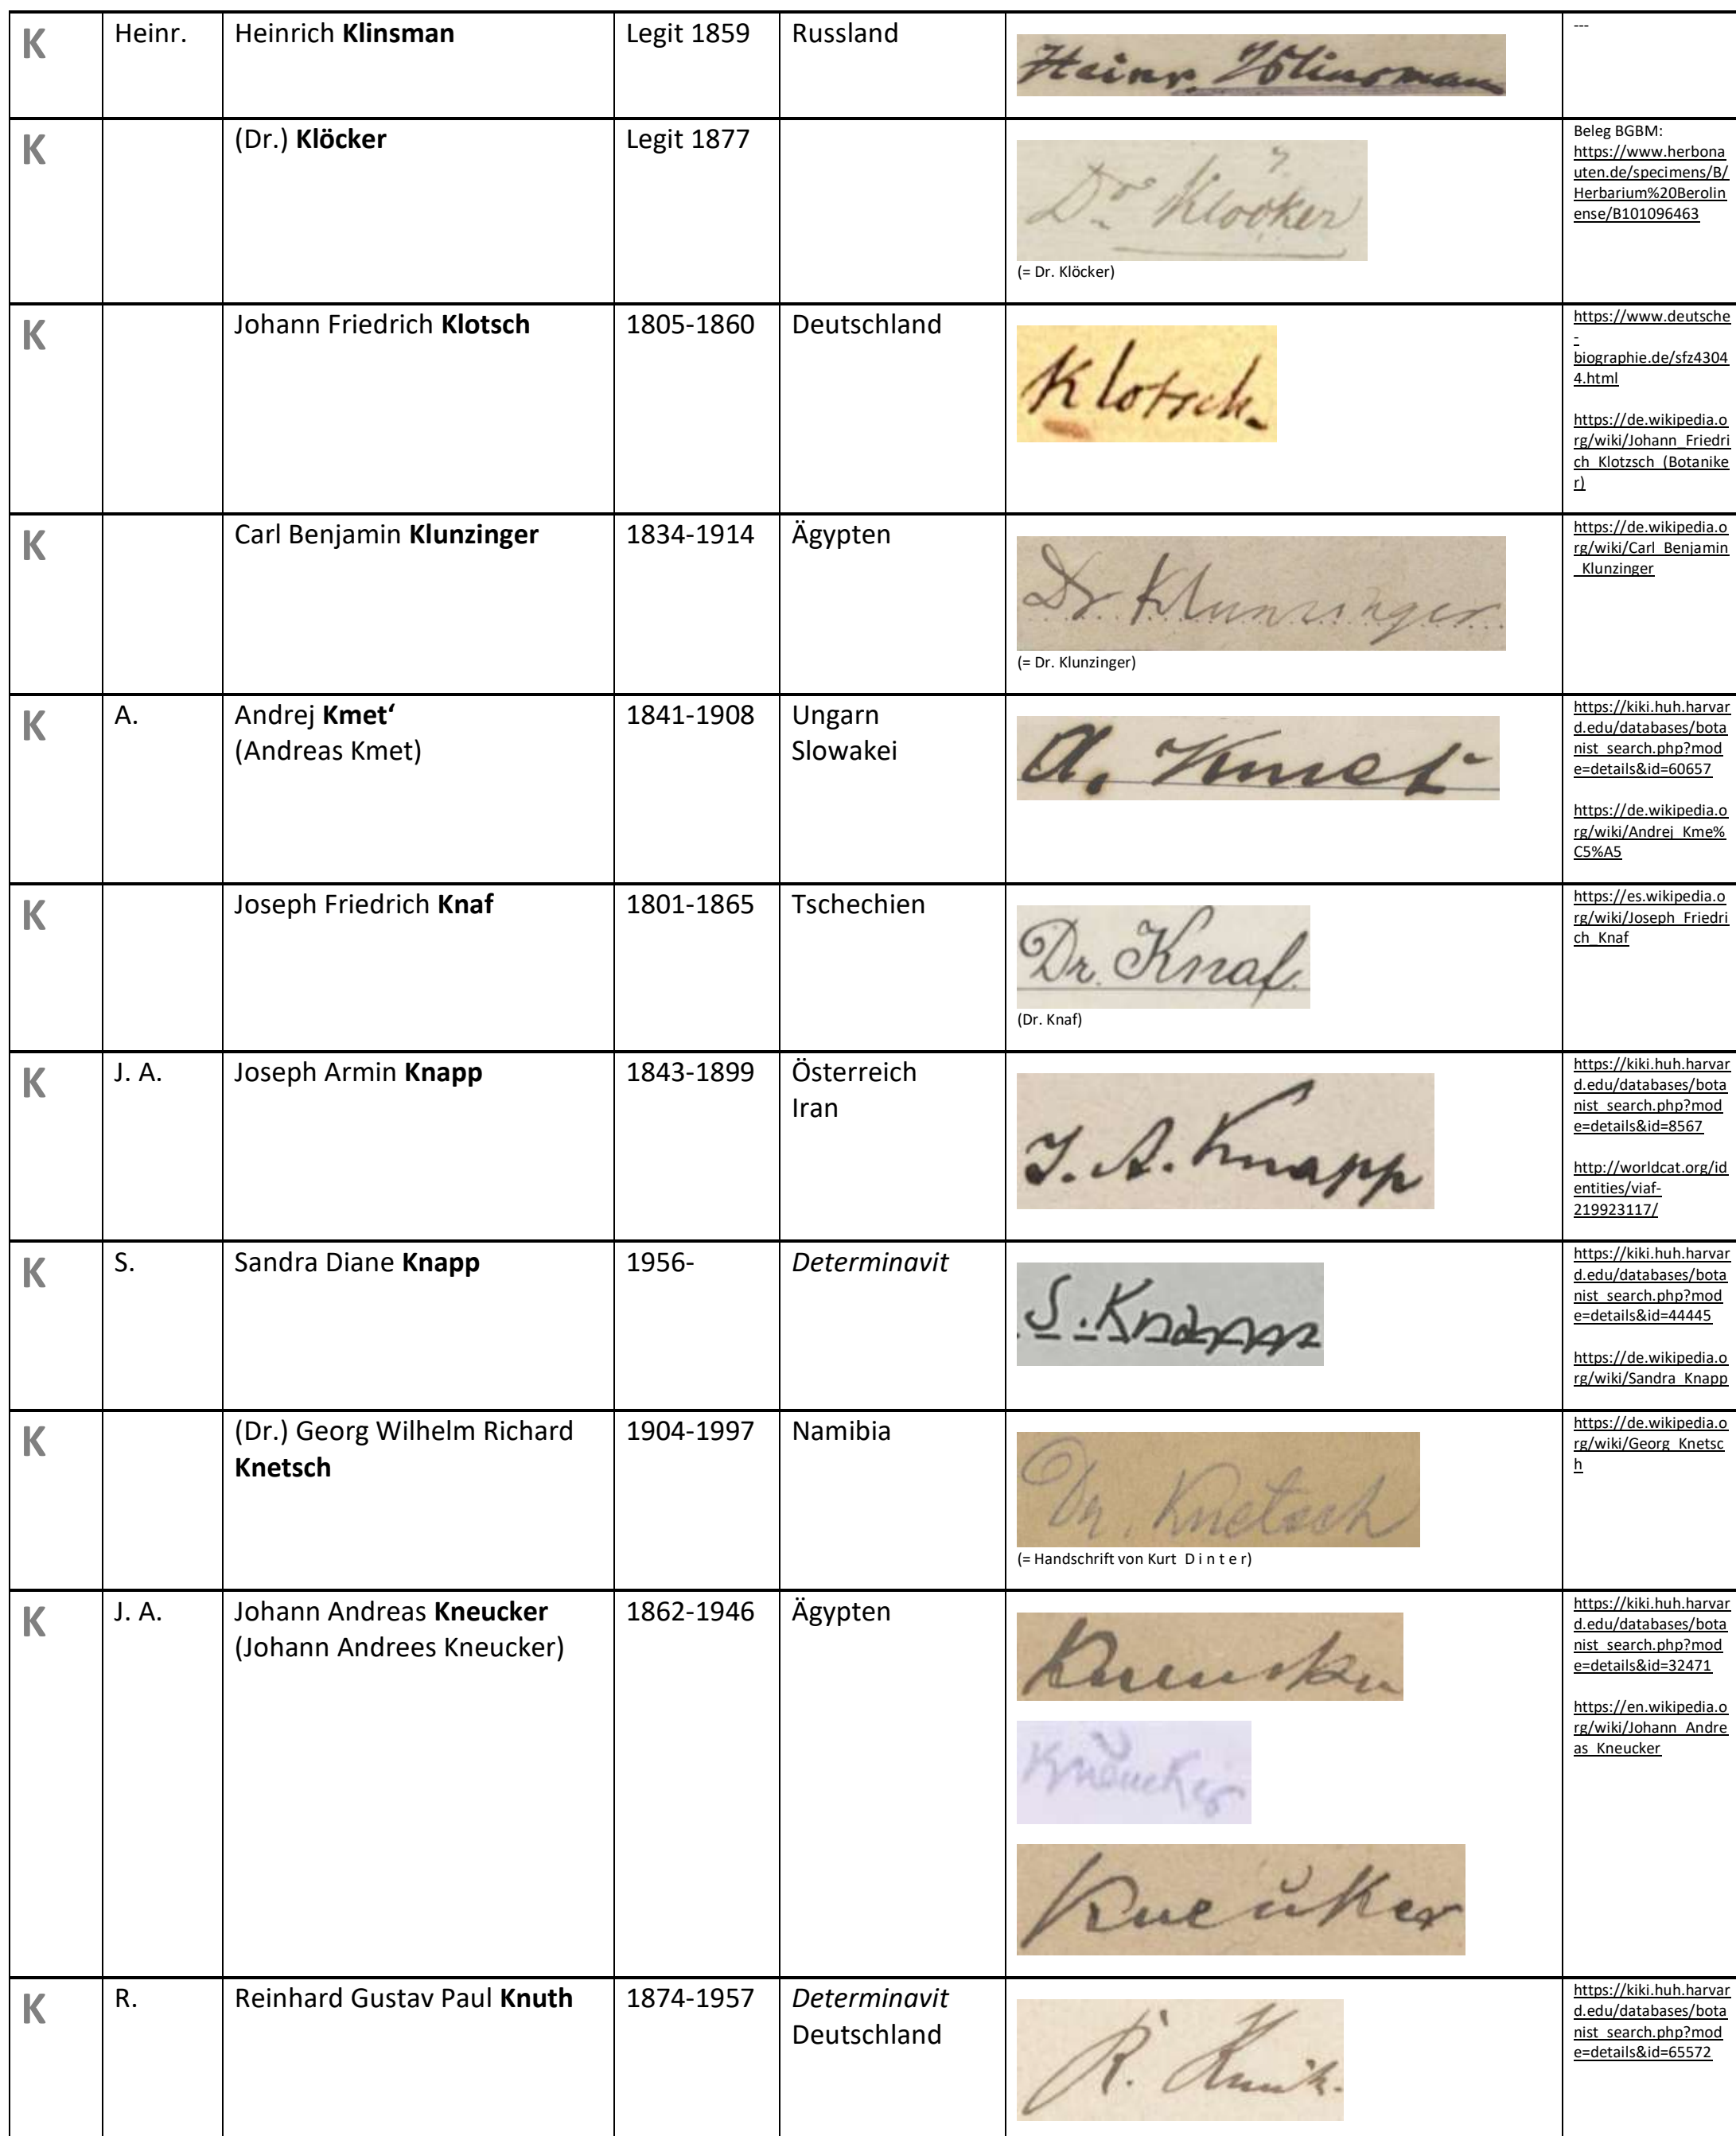 K
Heinr.
Heinrich Klinsman
Legit 1859
Russland
Heinr. Klinsman
---
K
(Dr.) Klöcker
Legit 1877
Dr Klöcker
(= Dr. Klöcker)
Beleg BGBM:
https://www.herbona
uten.de/specimens/B/
Herbarium%20Berolin
ense/B101096463
K
Johann Friedrich Klotsch
1805-1860
Deutschland
Klotsch.
https://www.deutsche
-
biographie.de/sfz4304
4.html
https://de.wikipedia.o
rg/wiki/Johann_Friedri
ch_Klotzsch_(Botanike
r)
K
Carl Benjamin Klunzinger
1834-1914
Ägypten
Dr. Klunzinger
(= Dr. Klunzinger)
https://de.wikipedia.o
rg/wiki/Carl_Benjamin
_Klunzinger
K
A.
Andrej Kmet‘
(Andreas Kmet)
1841-1908
Ungarn
Slowakei
A. Kmet
https://kiki.huh.harvar
d.edu/databases/bota
nist_search.php?mod
e=details&id=60657
https://de.wikipedia.o
rg/wiki/Andrej_Kme%
C5%A5
K
Joseph Friedrich Knaf
1801-1865
Tschechien
Dr. Knaf.
(Dr. Knaf)
https://es.wikipedia.o
rg/wiki/Joseph_Friedri
ch_Knaf
K
J. A.
Joseph Armin Knapp
1843-1899
Österreich
Iran
J. A. Knapp
https://kiki.huh.harvar
d.edu/databases/bota
nist_search.php?mod
e=details&id=8567
http://worldcat.org/id
entities/viaf-
219923117/
K
S.
Sandra Diane Knapp
1956-
Determinavit
S. Knapp
https://kiki.huh.harvar
d.edu/databases/bota
nist_search.php?mod
e=details&id=44445
https://de.wikipedia.o
rg/wiki/Sandra_Knapp
K
(Dr.) Georg Wilhelm Richard
Knetsch
1904-1997
Namibia
Dr. Knetsch
(= Handschrift von Kurt D i n t e r)
https://de.wikipedia.o
rg/wiki/Georg_Knetsc
h
K
J. A.
Johann Andreas Kneucker
(Johann Andrees Kneucker)
1862-1946
Ägypten
Kneucker
Kneucker
Kneuker
https://kiki.huh.harvar
d.edu/databases/bota
nist_search.php?mod
e=details&id=32471
https://en.wikipedia.o
rg/wiki/Johann_Andre
as_Kneucker
K
R.
Reinhard Gustav Paul Knuth
1874-1957
Determinavit
Deutschland
R. Knuth.
https://kiki.huh.harvar
d.edu/databases/bota
nist_search.php?mod
e=details&id=65572